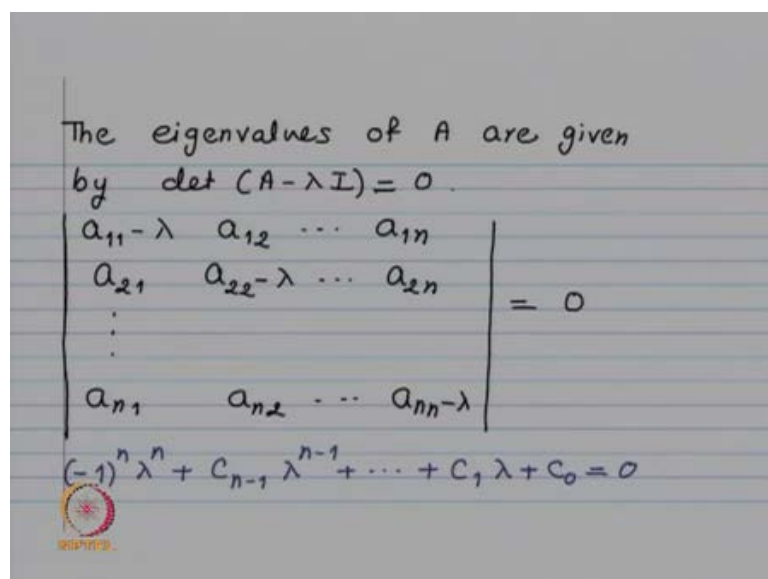 The eigenvalues of A are given
by det (A - λI) = 0.
a₁₁ - λ a₁₂ ··· a₁ₙ
a₂₁ a₂₂ - λ ··· a₂ₙ
= 0
⋮
aₙ₁ aₙ₂ ··· aₙₙ - λ
(-1)ⁿ λⁿ + Cₙ₋₁ λⁿ⁻¹ + ··· + C₁ λ + C₀ = 0
NPTEL